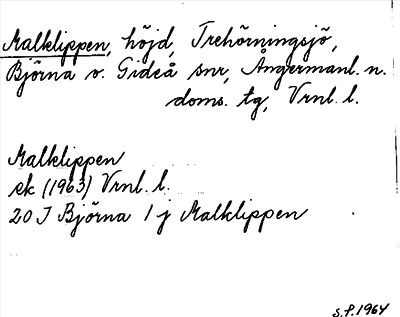 Malklippen, höjd, Trehörningsjö,
Björna o. Gideå snr, Ångermanl. n.
doms. tg, Vrnl. l.
Malklippen
ek (1963) Vrnl. l.
20 J Björna 1 j Malklippen
S.P. 1964